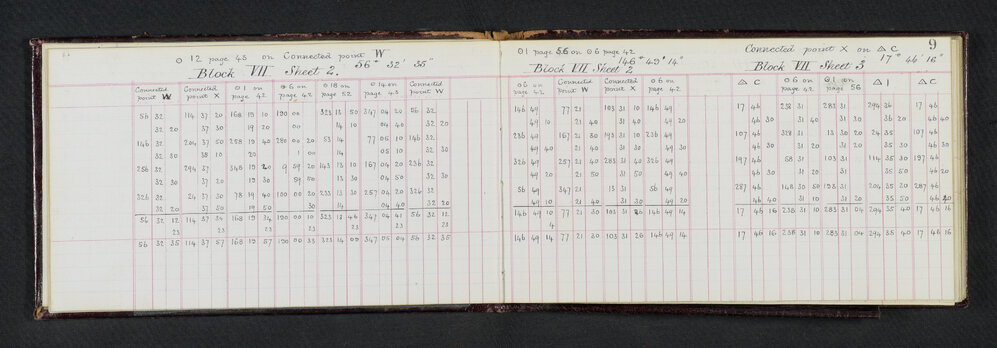 O 12 page 43 on Connected point W
56° 32' 35"
Block VII Sheet 2.
Connected point W Connected point X O 1 on page 42 O 6 on page 42 O 18 on page 52 O 14 on page 43 Connected point W
56 32 114 37 20 168 19 10 190 00 323 13 50 347 04 20 56 32
32 20 37 30 19 20 00 14 10 04 40 32 20
146 32 204 37 50 258 19 40 280 00 20 53 14 77 05 10 146 32
32 30 38 10 20 1 00 14 05 10 32 30
236 32 294 37 348 19 20 9 59 20 143 13 10 167 04 20 236 32
32 30 37 20 19 30 59 50 13 30 04 50 32 30
326 32 24 37 30 78 19 40 100 00 20 233 13 30 257 04 20 326 32
32 20 37 50 19 50 30 14 04 40 32 20
56 32 12 114 37 34 168 19 34 190 00 10 323 13 46 347 04 41 56 32 12
23 23 23 23 23 23
56 32 35 114 37 57 168 19 57 190 00 33 323 14 09 347 05 04 56 32 35
O 1 page 56 on O 6 page 42
146° 49' 14"
Block VII Sheet 2
O 6 on page 42 Connected point W Connected point X O 6 on page 42
146 49 77 21 103 31 10 146 49
49 10 21 40 31 40 49 20
236 49 167 21 30 193 31 10 236 49
49 40 21 40 31 30 49 30
326 49 257 21 40 283 31 40 326 49
49 20 21 50 31 50 49 40
56 49 347 21 13 31 56 49
49 10 21 40 31 49 20
146 49 10 77 21 30 103 31 26 146 49 14
4
146 49 14 77 21 30 103 31 26 146 49 14
9
Connected point X on △ C
17° 46' 16"
Block VII Sheet 3
△ C O 6 on page 42 O 1 on page 56 △ J △ C
17 46 238 31 283 31 294 36 17 46
46 30 31 40 31 36 20 46 40
107 46 328 31 13 30 20 24 35 107 46
46 30 31 20 31 35 30 46 30
197 46 58 31 103 31 114 35 30 197 46
46 30 31 20 31 35 50 46 20
287 46 148 30 50 193 31 204 35 20 287 46
46 40 31 10 31 35 50 46 20
17 46 16 238 31 10 283 31 04 294 35 40 17 46 16
17 46 16 238 31 10 283 31 04 294 35 40 17 46 16